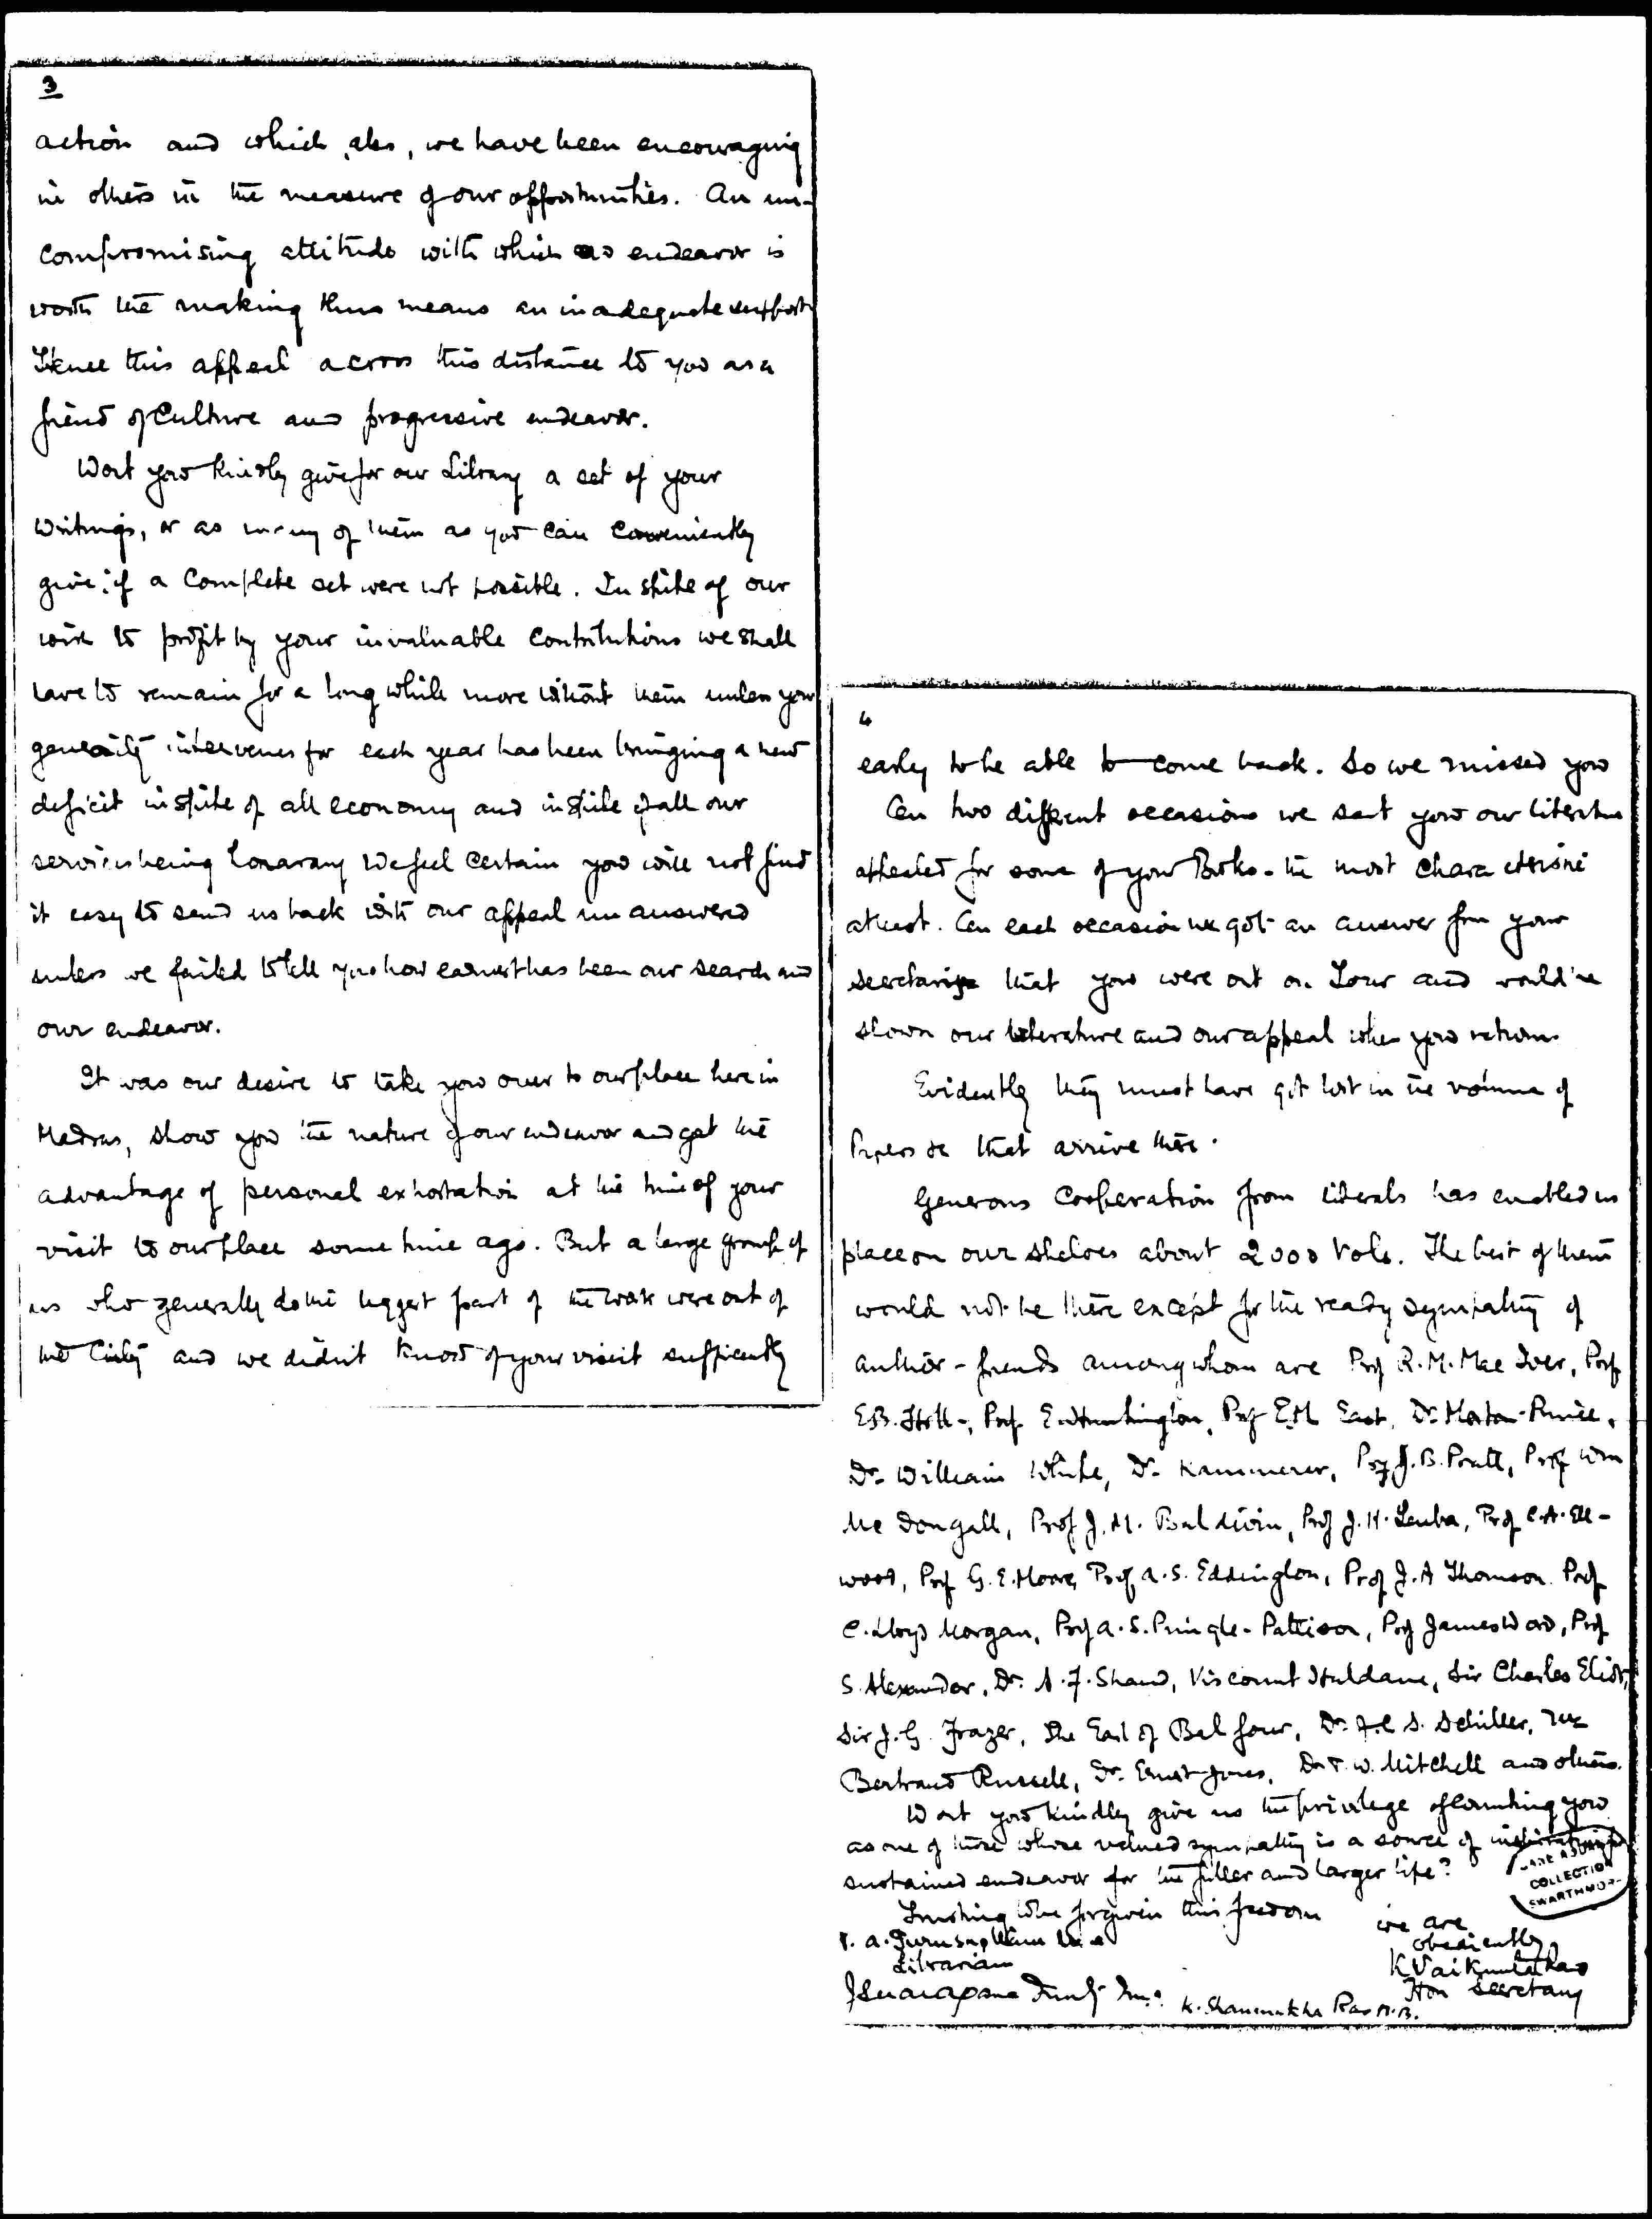 3
action and which, also, we have been encouraging
in others in the measure of our opportunities. An un-
compromising attitude with which no endeavor is
worth the making thus means an inadequate support
Hence this appeal across this distance to you as a
friend of Culture and progressive endeavor.
Wont you kindly give for our Library a set of your
writings, or as many of them as you can conveniently
give; if a Complete set were not possible. In spite of our
wish to profit by your invaluable Contributions we shall
have to remain for a long while more without them unless your
generosity intervenes for each year has been bringing a new
deficit in spite of all economy and in spite of all our
services being honorary We feel Certain you will not find
it easy to send us back with our appeal unanswered
unless we failed to tell you how earnest has been our search and
our endeavor.
It was our desire to take you over to our place here in
Madras, show you the nature of our endeavor and get the
advantage of personal exhortation at the time of your
visit to our place some time ago. But a large group of
us who generally do the biggest part of the work were out of
the City and we didn't know of your visit sufficiently
4
early to be able to come back. So we missed you
On two different occasions we sent you our literature
appealed for some of your Books - the most Characteristic
atleast. On each occasion we got an answer from your
secretaries that you were out on Tour and would be
shown our literature and our appeal when you return
Evidently they must have got lost in the volume of
Papers &c that arrive there.
Generous Cooperation from liberals has enabled us
place on our shelves about 2000 Vols. The best of them
would not be there except for the ready sympathy of
author-friends among whom are Prof R.M. Mac Iver, Prof
E.B. Holt-, Prof E. Huntington, Prof E.M. East, Dr. Morton-Prince,
Dr. William White, Dr. Kammerer, Prof J.B. Pratt, Prof Wm
Mc Dougall, Prof J.M. Baldwin, Prof J.H. Leuba, Prof C.A. Ell-
wood, Prof G.E. Moore, Prof A.S. Eddington, Prof J.A Thomson. Prof
C. Lloyd Morgan, Prof A.S. Pringle-Pattison, Prof James Ward, Prof
S. Alexander, Dr. A.F. Shand, Viscount Haldane, Sir Charles Eliot,
Sir J.G. Frazer, The Earl of Balfour, Dr. F.C.S. Schiller,
Bertrand Russell, Dr. Ernest Jones, Dr T.W. Mitchell and others.
Wont you kindly give us the privilege of counting you
as one of those whose valued sympathy is a source of inspiration for
sustained endeavor for the fuller and larger life?
JANE ADDAMS
COLLECTION
SWARTHMORE
Trusting to be forgiven this freedom
we are
obediently,
Librarian
K Vaikunta Rao
Hon Secretary
K. Shanmukha Rao